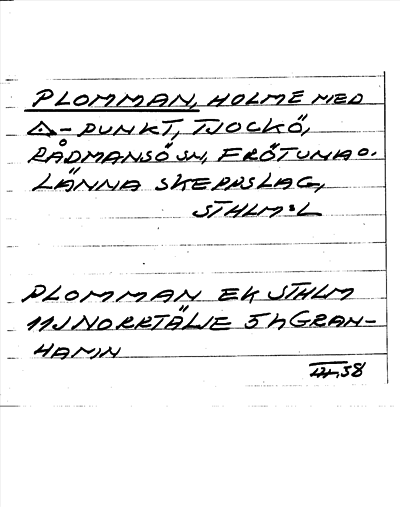 PLOMMAN, HOLME MED
△-PUNKT, TJOCKÖ,
RÅDMANSÖ SN, FRÖTUNA O.
LÄNNA SKEPPSLAG,
STHLM:L
PLOMMAN EK STHLM
11J NORRTÄLJE 5h GRAN-
HAMN
38